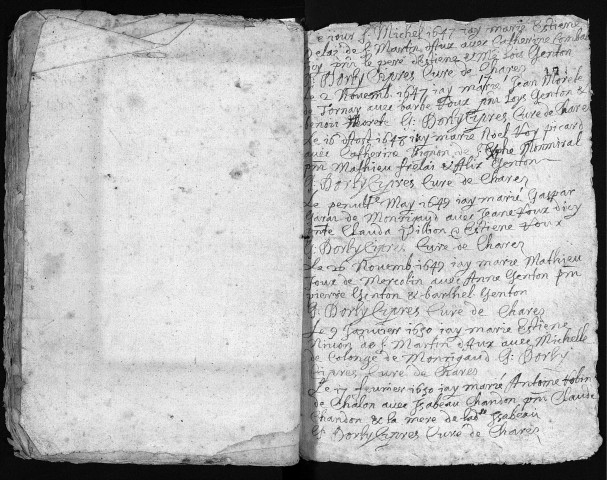 Le jour St Michel 1647 jay marié Estiene
de St Martin d'Aux avec Catherine
pnt le pere Estiene Lois Genton
G: Dorby Cypres Cure de Chares
Le 2 Novemb 1647 jay marié Jean Morele
Tornay avec barbe Foux pnt Loys Genton &
benoit Morele G: Dorby Cypres Cure de Chares
Le 16 Aost 1648 jay marié Noel Foy picard
avec Catherine Monniral
pnt Mathieu frelai & Alix Genton
G: Dorby Cypres Cure de Chares
Le May 1649 jay marié Gaspar
de Montrigaud avec Jeane Foux dicy
pnte Clauda & Estiene Foux
G: Dorby Cypres Cure de Chares
Le 26 Novemb 1649 jay marié Mathieu
Foux de Mercolin avec Anne Genton pnt
pierre Genton & barthel Genton
G: Dorby Cypres Cure de Chares
Le 9 Janvier 1650 jay marié Estiene
de St Martin d'Aux avec Michelle
de Colonge de Montrigaud G: Dorby
Cypres Cure de Chares
Le 17 fevrier 1650 jay marié Antoine
de Chalon avec Isabeau Chandon pnt Claude
Chandon & la mere de lade Isabeau
G: Dorby Cypres Cure de Chares